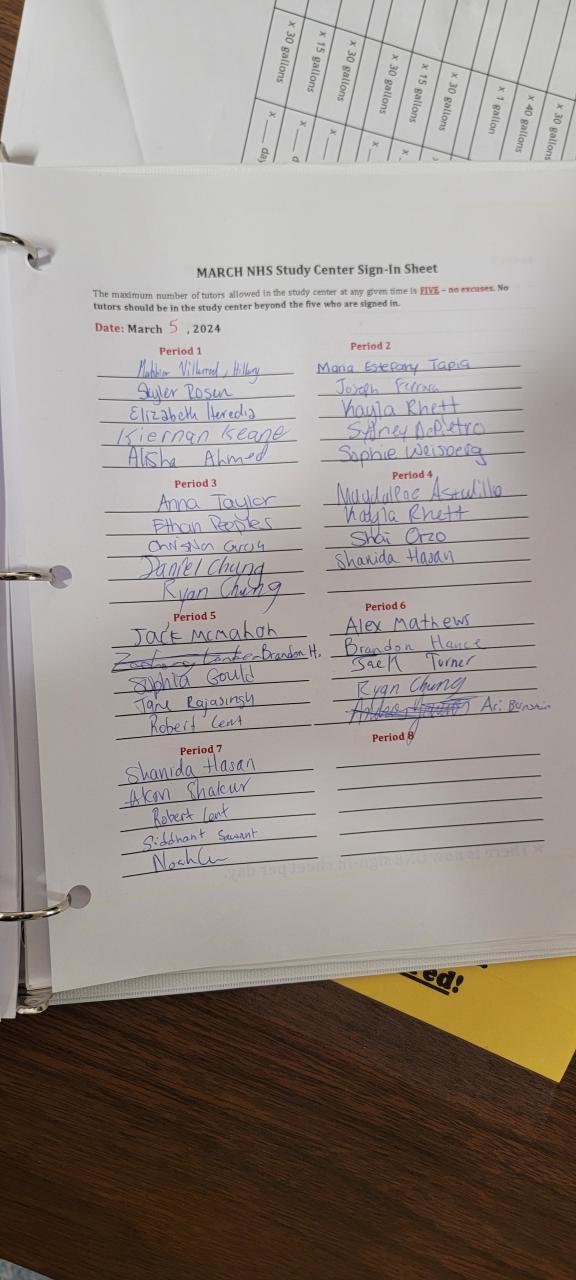 x 30 gallons
x 15 gallons
x 30 gallons
x 30 gallons
x 15 gallons
x 30 gallons
x 1 gallon
x 40 gallons
x 30 gallons
x ___ day
MARCH NHS Study Center Sign-In Sheet
The maximum number of tutors allowed in the study center at any given time is FIVE – no excuses. No
tutors should be in the study center beyond the five who are signed in.
Date: March 5, 2024
Period 1
Villarreal, Hillary
Skyler Rosen
Elizabeth Heredia
Kiernan Keane
Alisha Ahmed
Period 2
Maria Estefany Tapia
Joseph Ferrara
Kayla Rhett
Sydney DePietro
Sophie Weisberg
Period 3
Anna Taylor
Ethan Peoples
Daniel Chung
Ryan Chung
Period 4
Magdalene Astudillo
Kayla Rhett
Shai Orzo
Shanida Hasan
Period 5
Jack McMahon
Brandon H.
Sophia Gould
Jane Rajasingh
Robert Lent
Period 6
Alex Mathews
Brandon Hance
Jack Turner
Ryan Chung
Ari
Period 7
Shanida Hasan
Akon Shakur
Robert Lent
Siddhant Sawant
Noah
Period 8
There is now ONE sign-in sheet per day.
ed!